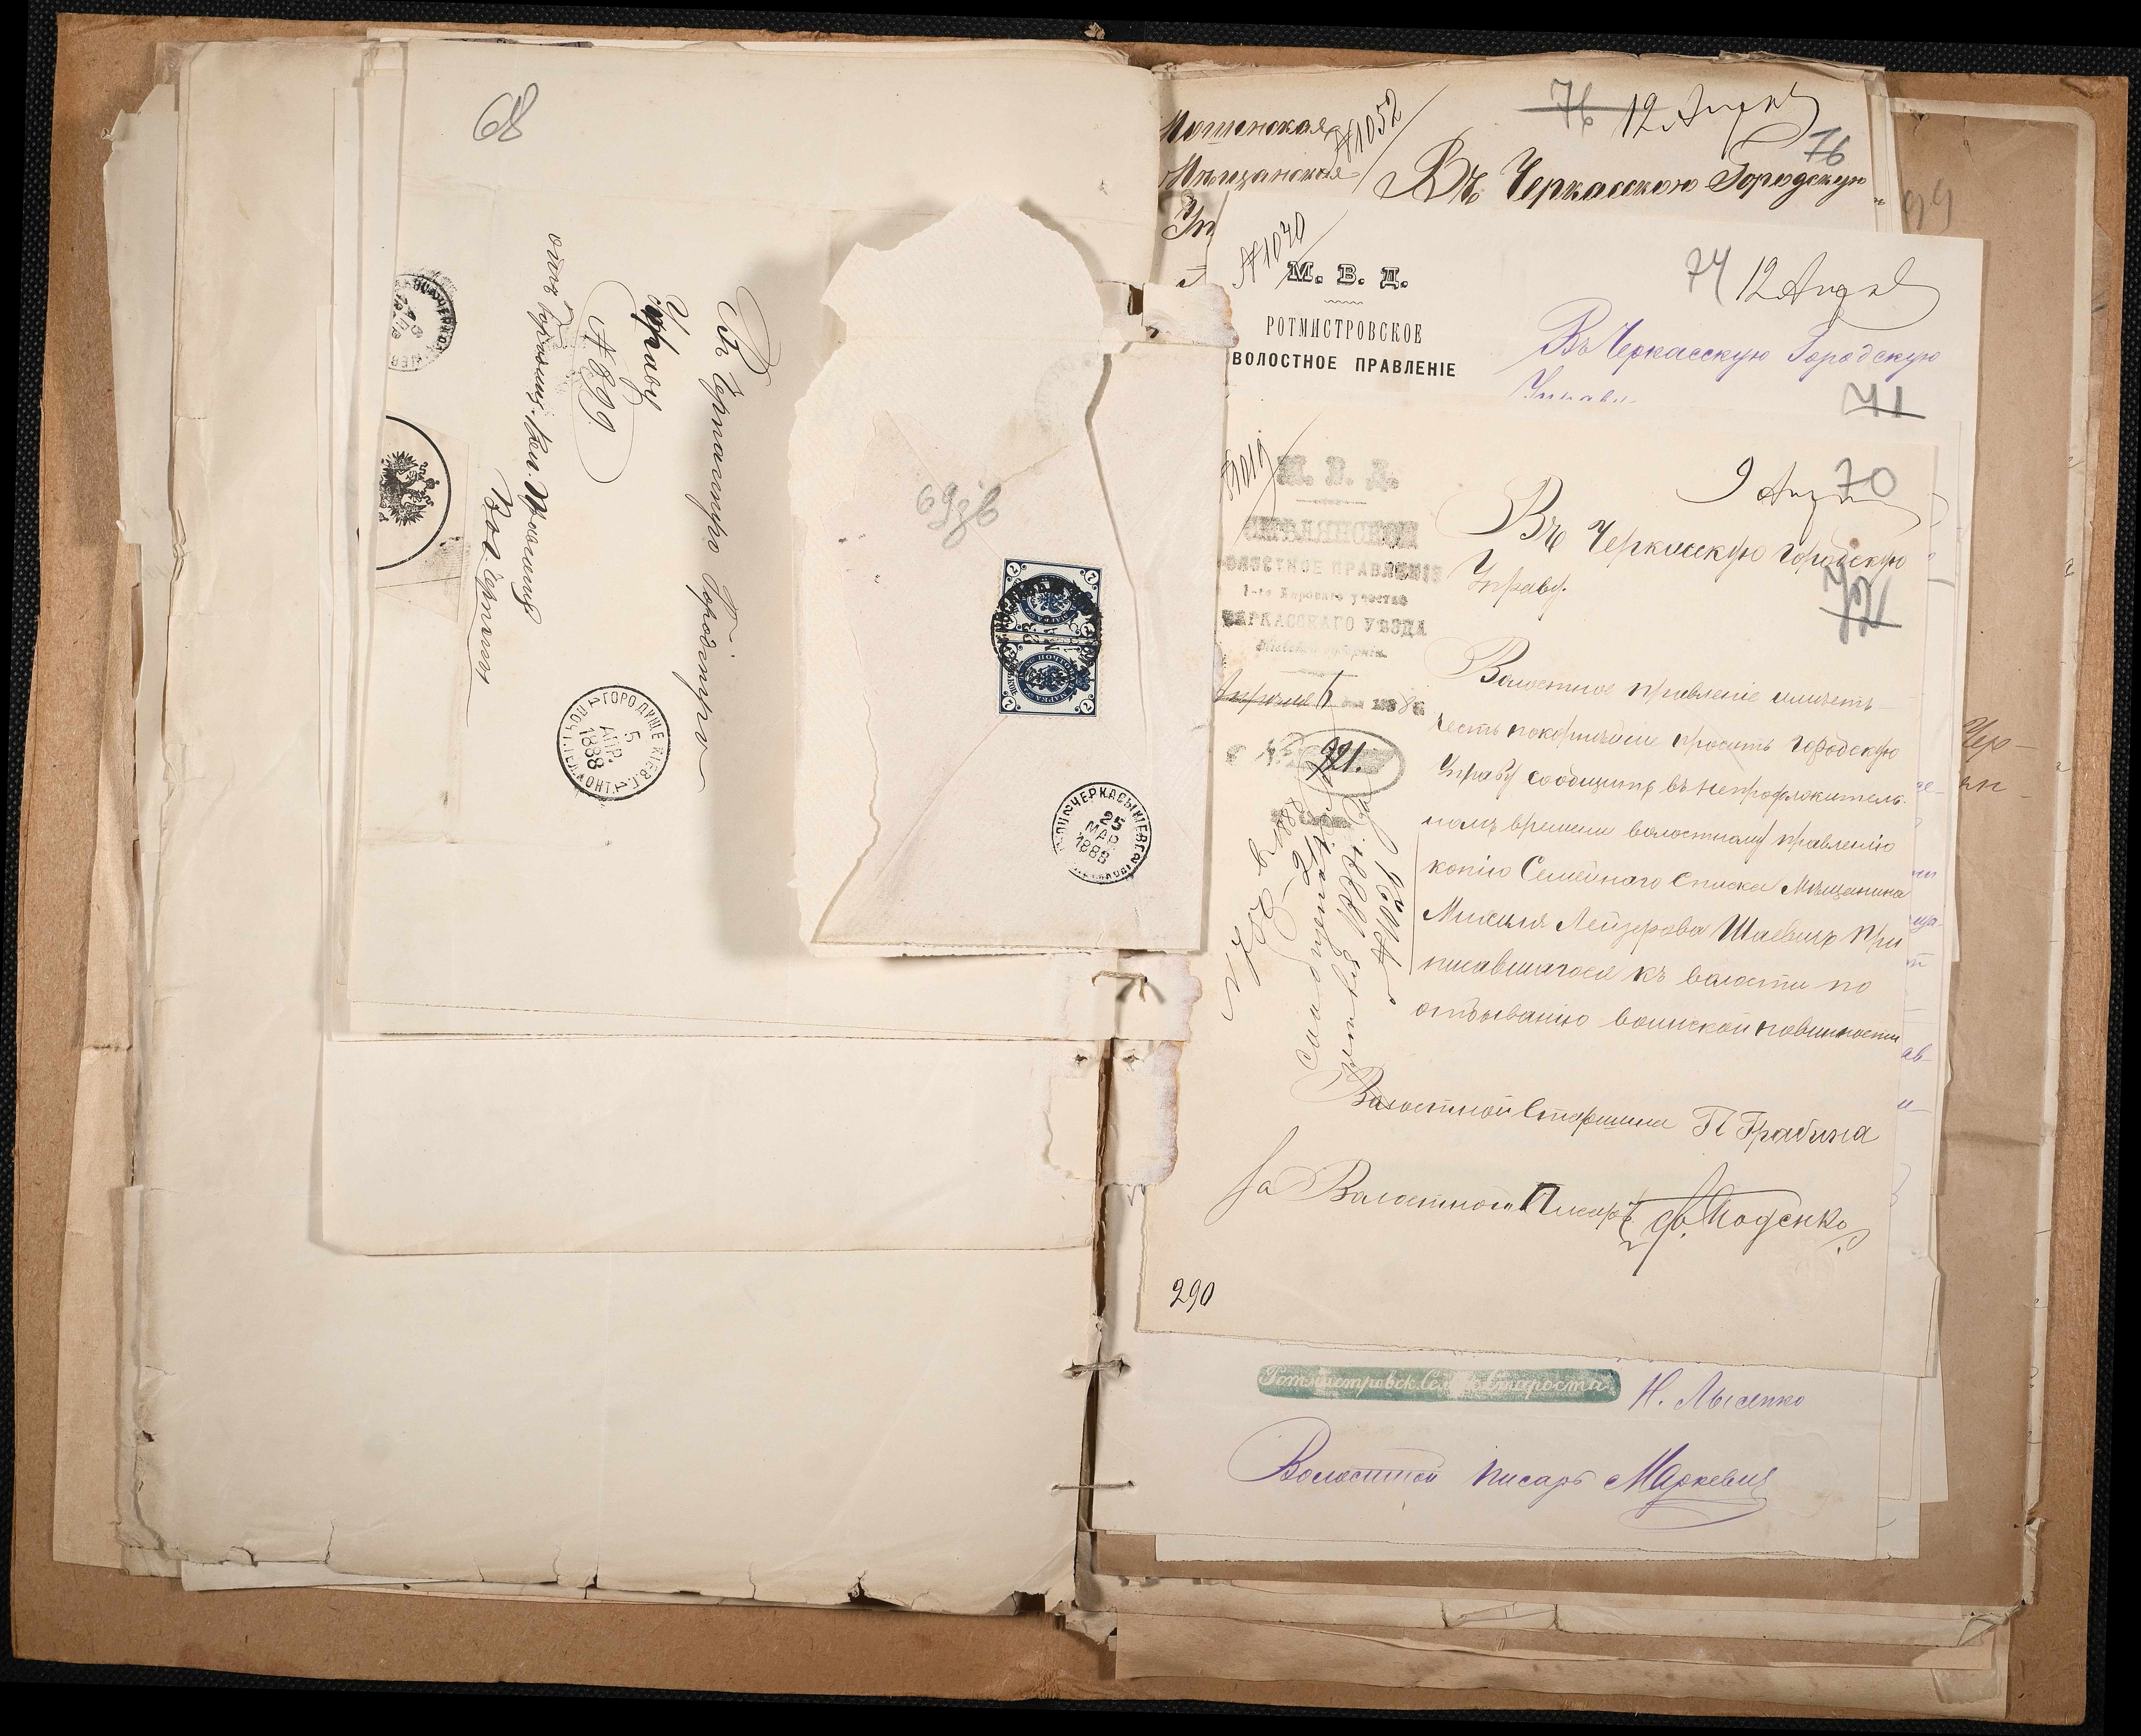 68
Въ Черкасскую Городскую
Управу
№ 899.
отъ Городищ. Вол. Правленія
Вол. Старшина
ГОРОДИЩЕ КІЕВ. Г.
5
АПР.
1888
69зв
25
МАР.
1888
ЧЕРКАСЫ КІЕВ. Г.
Мошенская
Мѣщанская
Уп
№1052
76
12 Апрѣл
76
Въ Черкасскою Городскую
99
№1040
М. В. Д.
РОТМИСТРОВСКОЕ
ВОЛОСТНОЕ ПРАВЛЕНІЕ
74
12 Апрѣл
Въ Черкасскую Городскую
Управу
71
№1019
М. В. Д.
ВОЛОСТНОЕ ПРАВЛЕНІЕ
1-го Мироваго участка
ЧЕРКАССКАГО УѢЗДА
Кіевской губерніи.
Апрѣля 6 дня 1888 г.
№ 921.
9 Апрѣл
70
Въ Черкасскую городскую
Управу.
72
Волостное правленіе имѣетъ
честь покорнѣйше просить городскую
Управу сообщить въ непродолжитель
номъ времени волостному правленію
копію Семейнаго списка Мѣщанина
Михеля Лейзерова Шаевичъ при
писавшагося къ волости по
отбыванію воинской повинности
Волостной Старшина П Грабина
За Волостной Писарь
290
Ротмистровск. Сел. Староста
Н. Лысенко
Волостной писарь Маркевич
Чер-